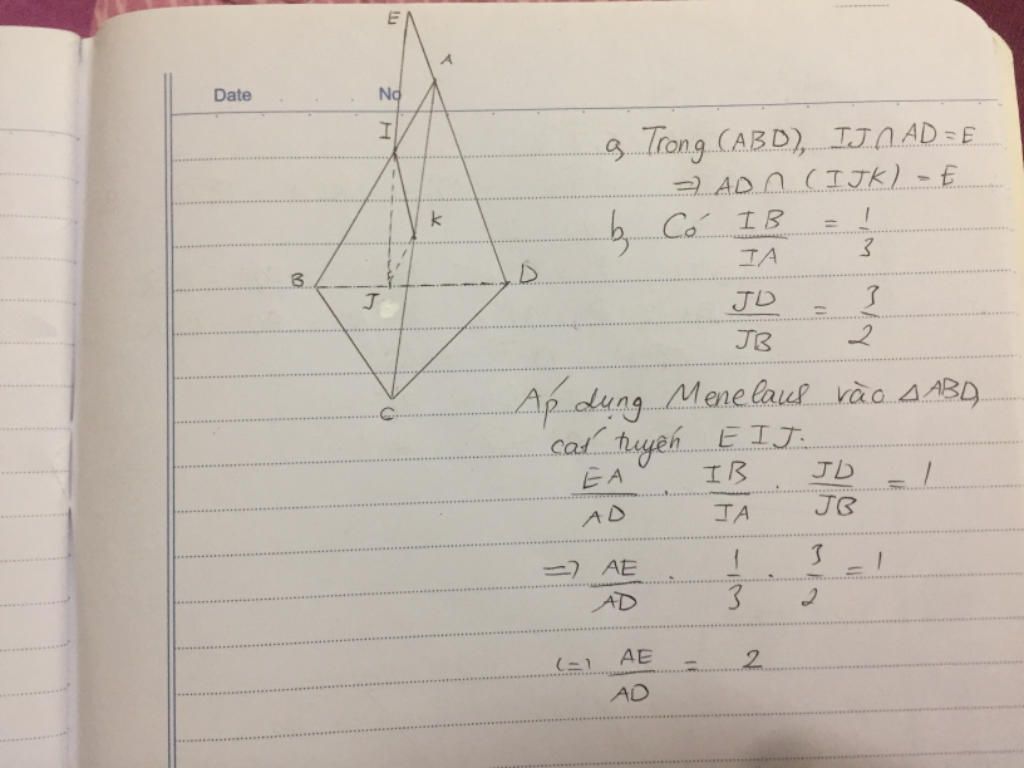 Date No
E
A
I
K
B
J
D
C
a, Trong (ABD), IJ ∩ AD = E
=> AD ∩ (IJK) = E
b, Có IB/IA = 1/3
JD/JB = 3/2
Áp dụng Menelaus vào △ABD,
cát tuyến EIJ.
EA/AD . IB/IA . JD/JB = 1
=> AE/AD . 1/3 . 3/2 = 1
(=) AE/AD = 2